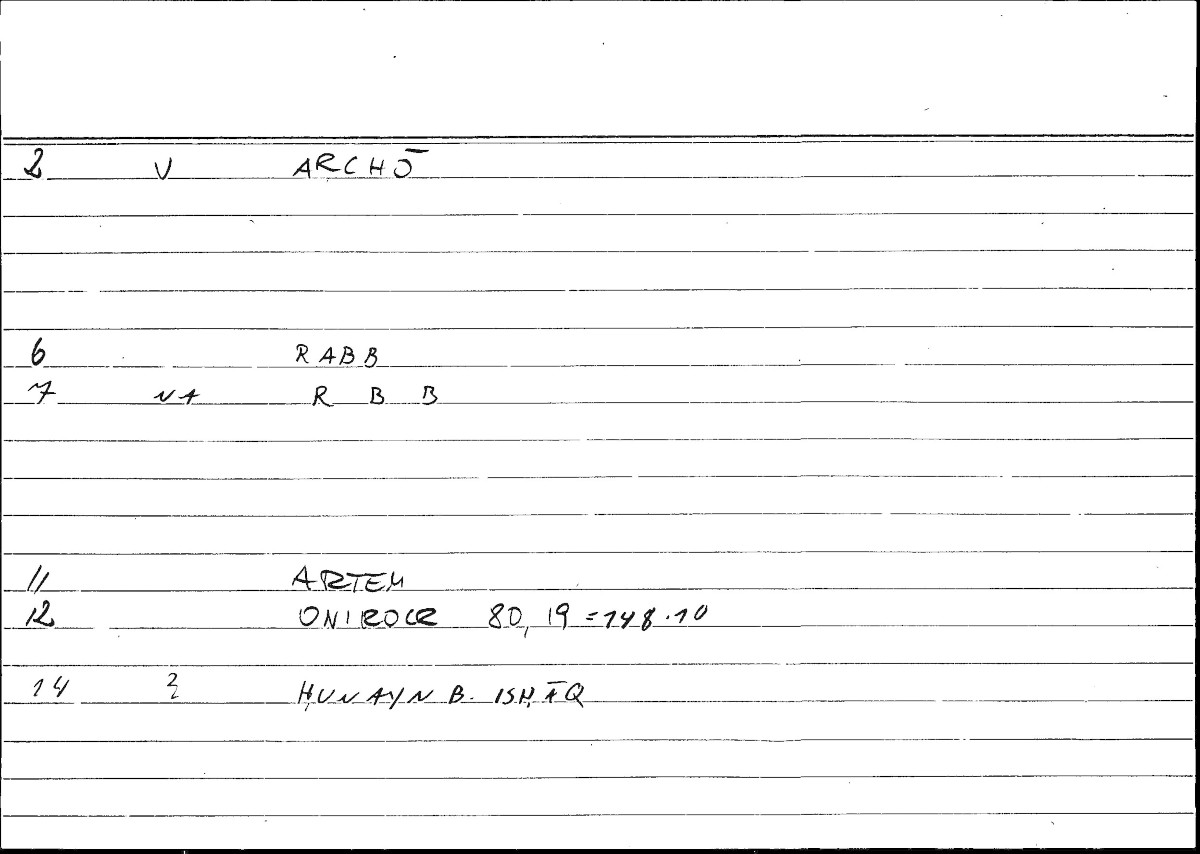 2 V ARCHŌ
6 RABB
7 NA R B B
11 ARTEM
12 ONIROCR 80,19=148.10
14 2 ḤUNAYN B. ISḤĀQ